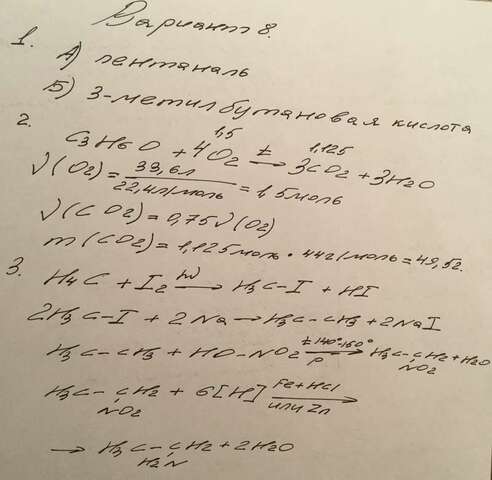 Вариант 8.
1.
А) пентаналь
Б) 3-метилбутановая кислота
2.
1,5 1,125
C3H6O + 4O2 t→ 3CO2 + 3H2O
ν(O2) = 33,6л / 22,4л/моль = 1,5моль
ν(CO2) = 0,75ν(O2)
m(CO2) = 1,125моль · 44г/моль = 49,5г.
3.
H4C + I2 hν→ H3C-I + HI
2H3C-I + 2Na → H3C-CH3 + 2NaI
H3C-CH3 + HO-NO2 t 140°-150° p→ H3C-CH2 + H2O
NO2
H3C-CH2 + 6[H] Fe+HCl или Zn→
NO2
→ H3C-CH2 + 2H2O
H2N